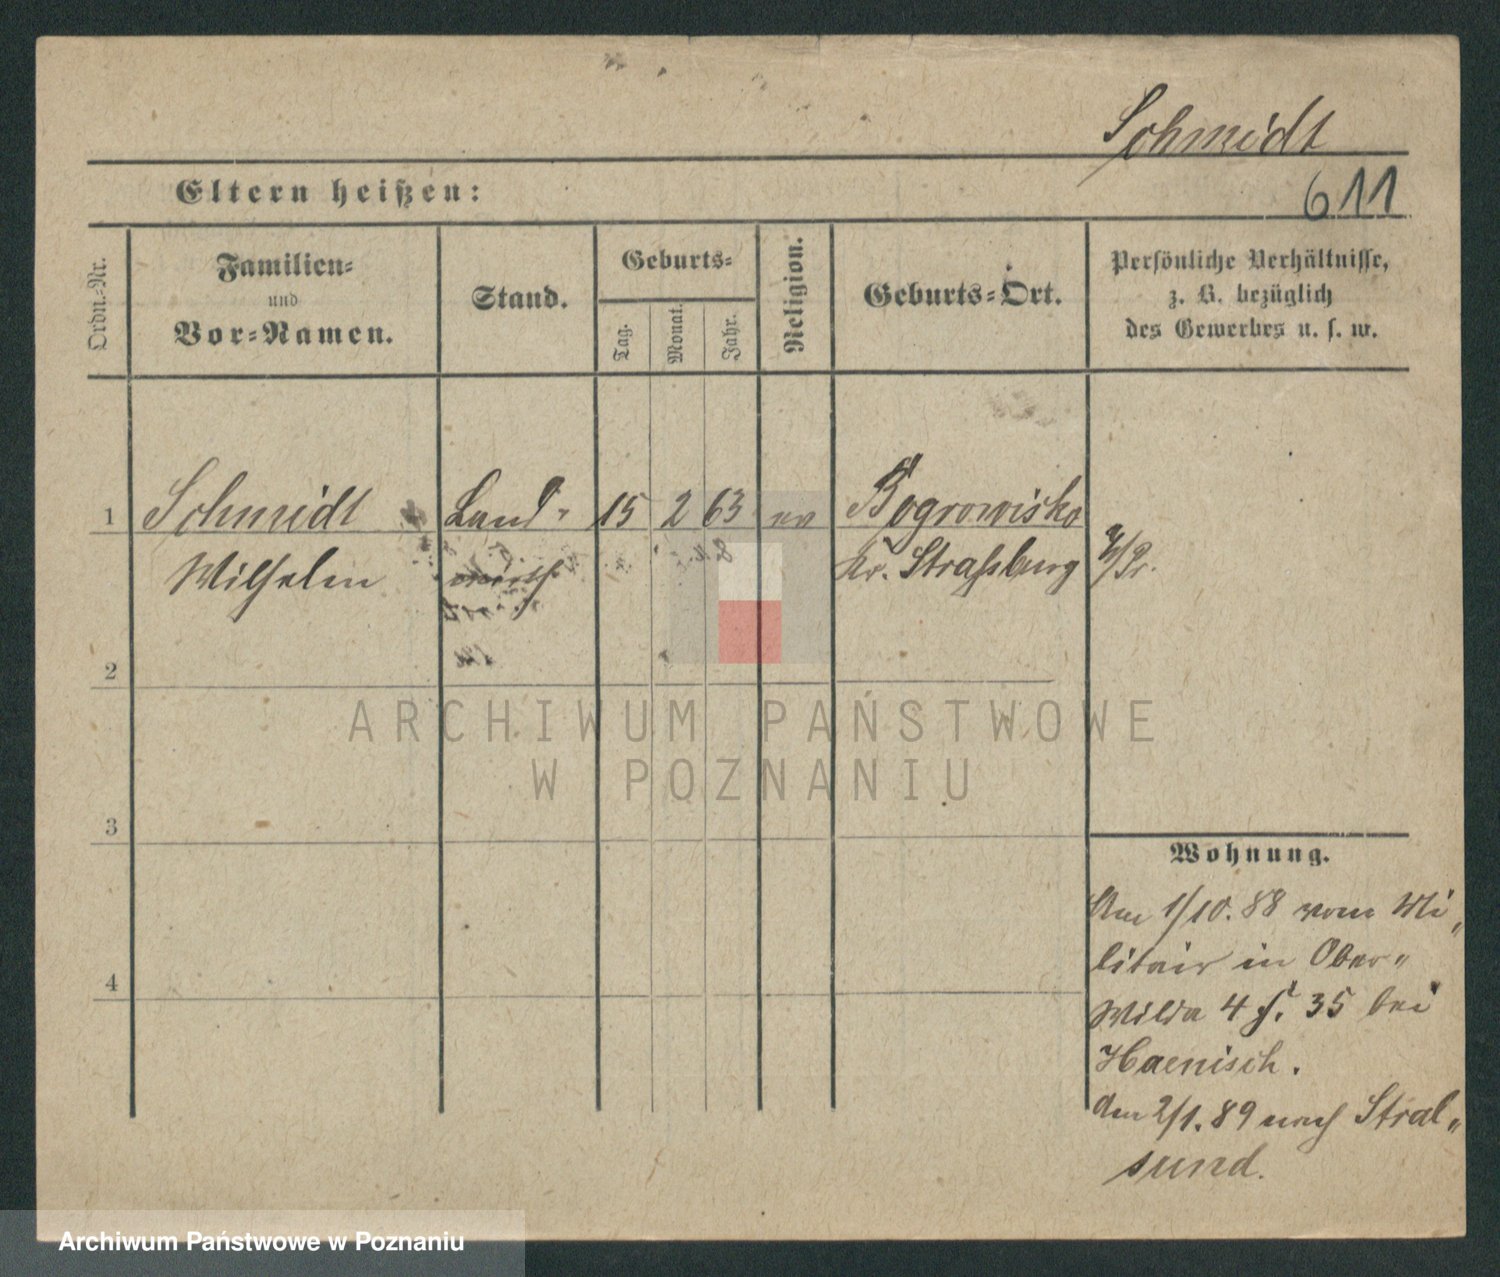 Schmidt
Eltern heißen:
611
Ordn.-Nr.
Familien-
und
Vor-Namen.
Stand.
Geburts-
Tag.
Monat.
Jahr.
Religion.
Geburts-Ort.
Persönliche Verhältnisse,
z. B. bezüglich
des Gewerbes u. s. w.
1
Schmidt
Land-
15
2
63
ev
Bogrowisko
Wilhelm
wirth
Kr. Straßburg
W/Pr.
2
ARCHIWUM PAŃSTWOWE
W POZNANIU
3
4
Wohnung.
Am 1/10. 88 vom Mi„
litair in Ober„
Wilda 4 f. 35 bei
Haenisch.
Am 2/1. 89 nach Stral„
sund.
Archiwum Państwowe w Poznaniu